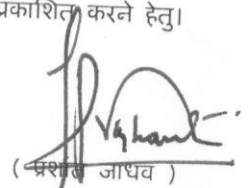 प्रकाशित करने हेतु।
( प्रशांत जाधव )